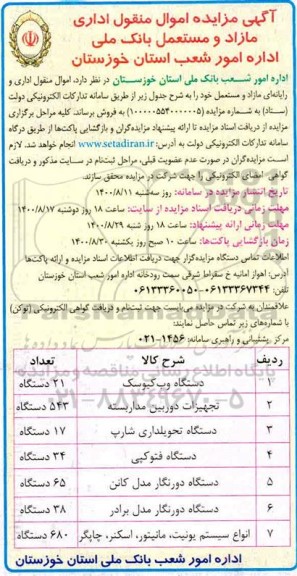 آگهی مزایده اموال منقول اداری
مازاد و مستعمل بانک ملی
اداره امور شعب استان خوزستان
اداره امور شعب بانک ملی استان خوزستان در نظر دارد، اموال منقول اداری و
رایانه‌ای مازاد و مستعمل خود را به شرح جدول زیر از طریق سامانه تدارکات الکترونیکی دولت
(ستاد) به شماره مزایده (۱۰۰۰۰۰۵۵۴۰۰۰۰۰۰۵) به فروش برساند. کلیه مراحل برگزاری
مزایده از دریافت اسناد مزایده تا ارائه پیشنهاد مزایده‌گران و بازگشایی پاکت‌ها از طریق درگاه
سامانه تدارکات الکترونیکی دولت به آدرس: www.setadiran.ir انجام خواهد شد. لازم
است مزایده‌گران در صورت عدم عضویت قبلی، مراحل ثبت‌نام در سایت مذکور و دریافت
گواهی امضای الکترونیکی را جهت شرکت در مزایده محقق سازند.
تاریخ انتشار مزایده در سامانه: روز سه‌شنبه ۱۴۰۰/۸/۱۱
مهلت زمانی دریافت اسناد مزایده از سایت: ساعت ۱۸ روز دوشنبه ۱۴۰۰/۸/۱۷
مهلت زمانی ارائه پیشنهاد: ساعت ۱۸ روز ۱۴۰۰/۸/۲۹
زمان بازگشایی پاکت‌ها: ساعت ۱۰ صبح روز یکشنبه ۱۴۰۰/۸/۳۰
اطلاعات تماس دستگاه مزایده‌گزار جهت دریافت اطلاعات اسناد مزایده و ارائه پاکت‌ها
آدرس: اهواز امانیه خ سقراط شرقی سمت رودخانه اداره امور شعب استان خوزستان
تلفن: ۰۶۱۳۳۳۶۷۳۴۴-۰۶۱۳۳۳۶۰۰۵۰
علاقمندان به شرکت در مزایده می‌بایست جهت ثبت‌نام و دریافت گواهی الکترونیکی (توکن)
با شماره‌های زیر تماس حاصل نمایند:
مرکز پشتیبانی و راهبری سامانه: ۱۴۵۶-۰۲۱
ردیف شرح کالا تعداد
۱ دستگاه وب‌کیوسک ۲۱ دستگاه
۲ تجهیزات دوربین مداربسته ۵۴۳ دستگاه
۳ دستگاه تحویلداری شارپ ۱۷ دستگاه
۴ دستگاه فتوکپی ۳۴ دستگاه
۵ دستگاه دورنگار مدل کانن ۶۵ دستگاه
۶ دستگاه دورنگار مدل برادر ۳۸ دستگاه
۷ انواع سیستم یونیت، مانیتور، اسکنر، چاپگر ۶۸۰ دستگاه
اداره امور شعب بانک ملی استان خوزستان